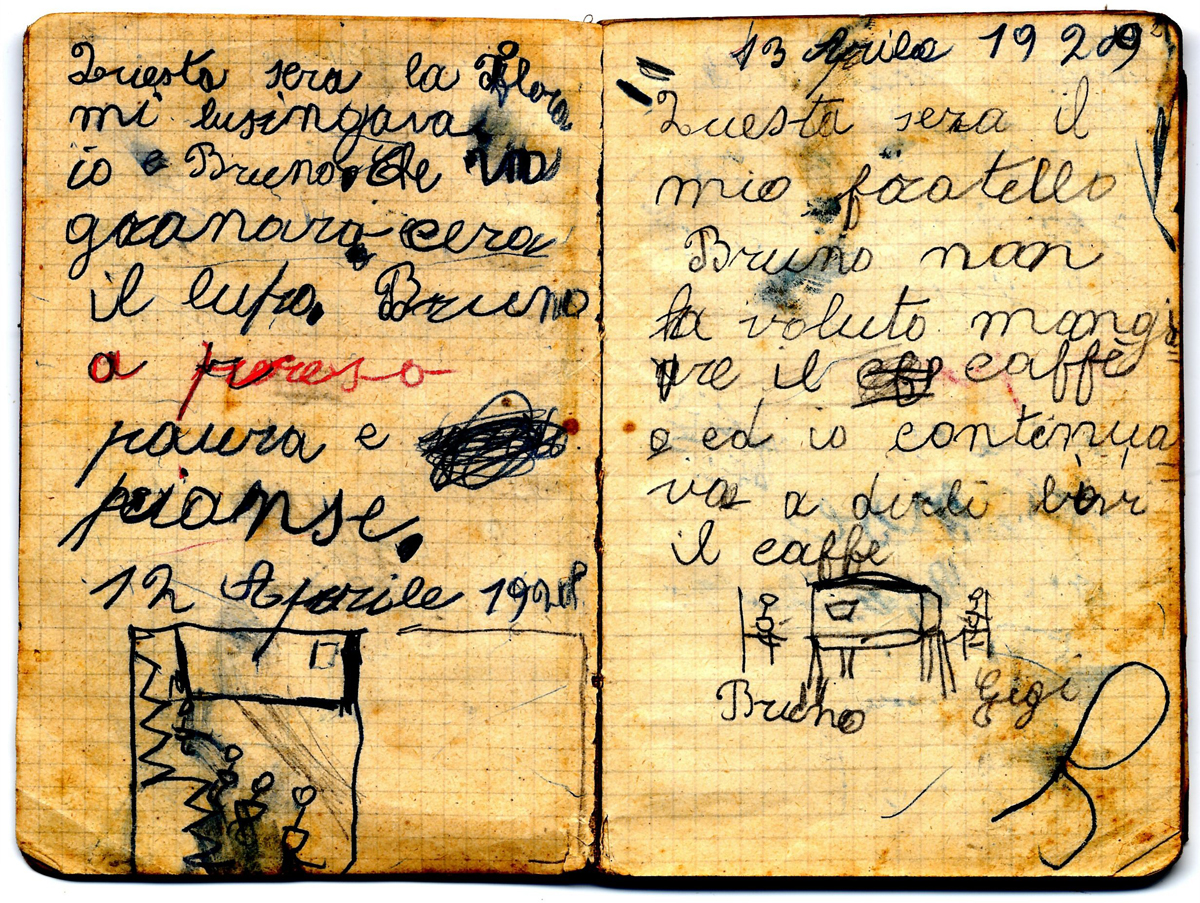 Questa sera la Flora
mi lusingava
io e Bruno, che in
granaro cera
il lupo. Bruno
a preso
paura e
pianse.
12 Aprile 1929
13 Aprile 1929
Questa sera il
mio fratello
Bruno non
ha voluto mangi
are il caffè
e ed io continua
va a dirli bivi
il caffe
Bruno
Gigi